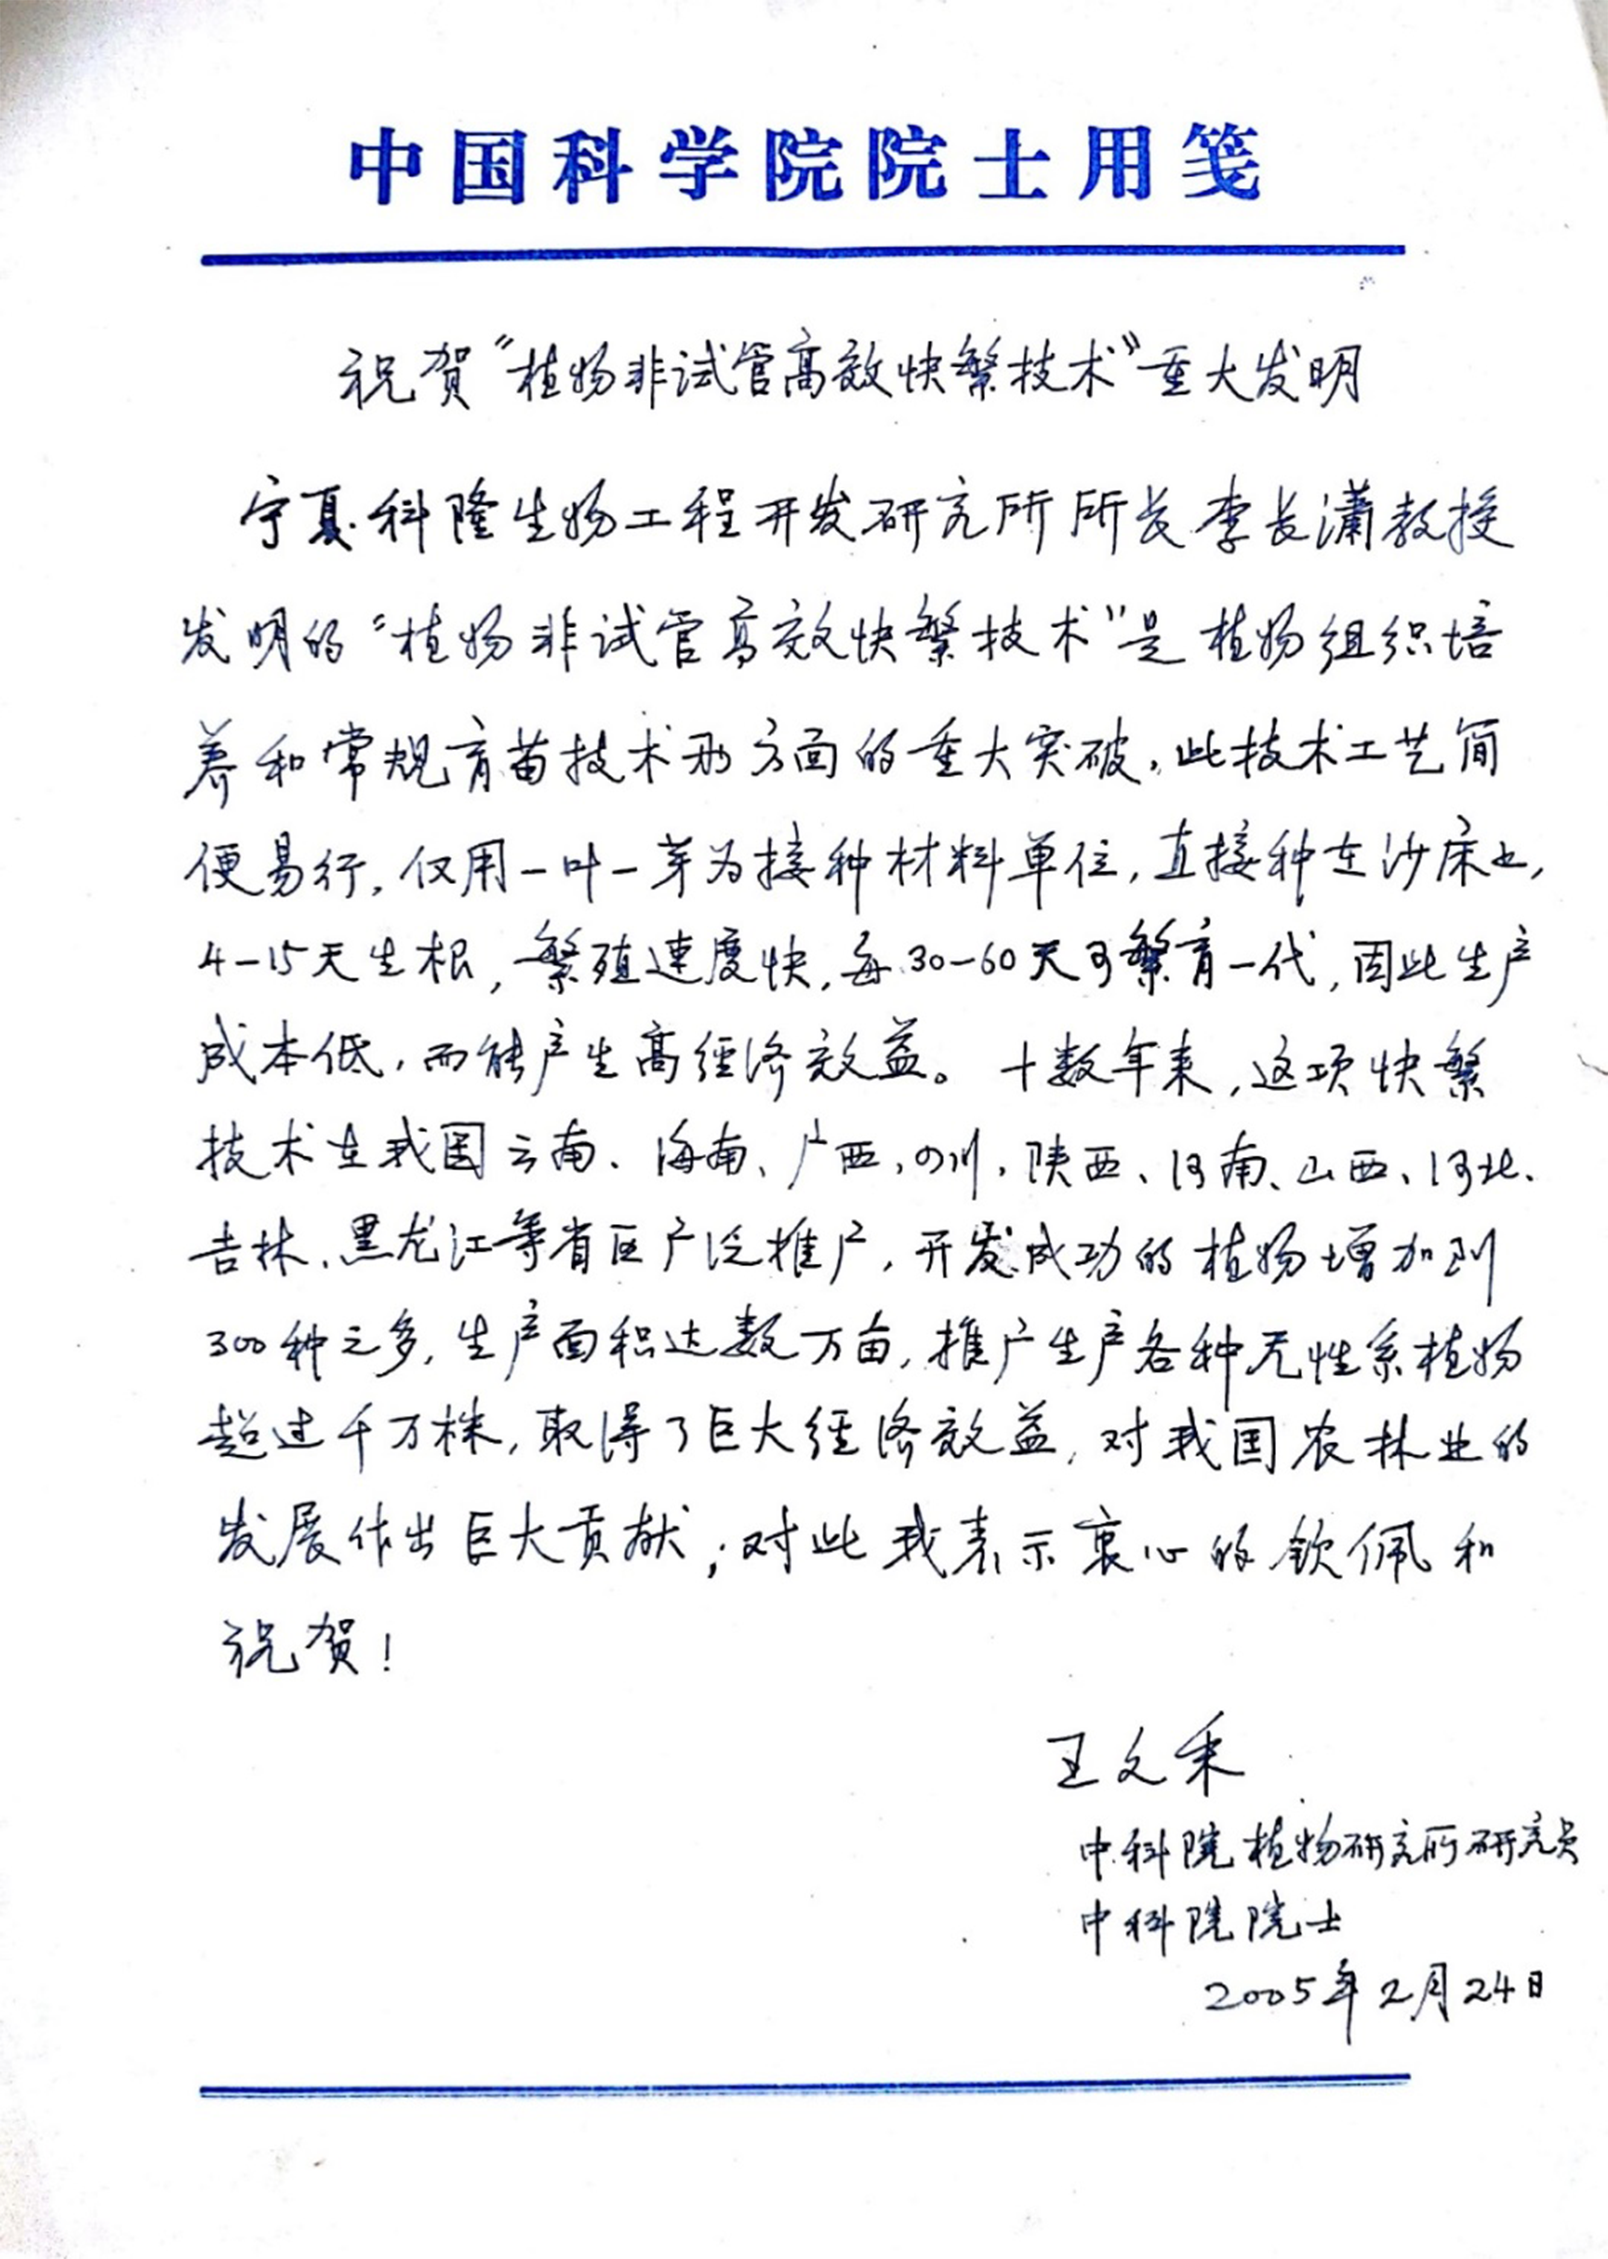 中国科学院院士用笺
祝贺“植物非试管高效快繁技术”重大发明
宁夏科隆生物工程开发研究所所长李长潇教授
发明的“植物非试管高效快繁技术”是植物组织培
养和常规育苗技术两方面的重大突破，此技术工艺简
便易行，仅用一叶一芽为接种材料单位，直接种在沙床上，
4-15天生根，繁殖速度快，每30-60天可繁育一代，因此生产
成本低，而能产生高经济效益。十数年来，这项快繁
技术在我国云南、海南、广西，四川，陕西、河南、山西、河北、
吉林、黑龙江等省区广泛推广，开发成功的植物增加到
300种之多，生产面积达数万亩，推广生产各种无性系植物
超过千万株，取得了巨大经济效益，对我国农林业的
发展作出巨大贡献；对此我表示衷心的钦佩和
祝贺！
王文采
中科院植物研究所研究员
中科院院士
2005年2月24日